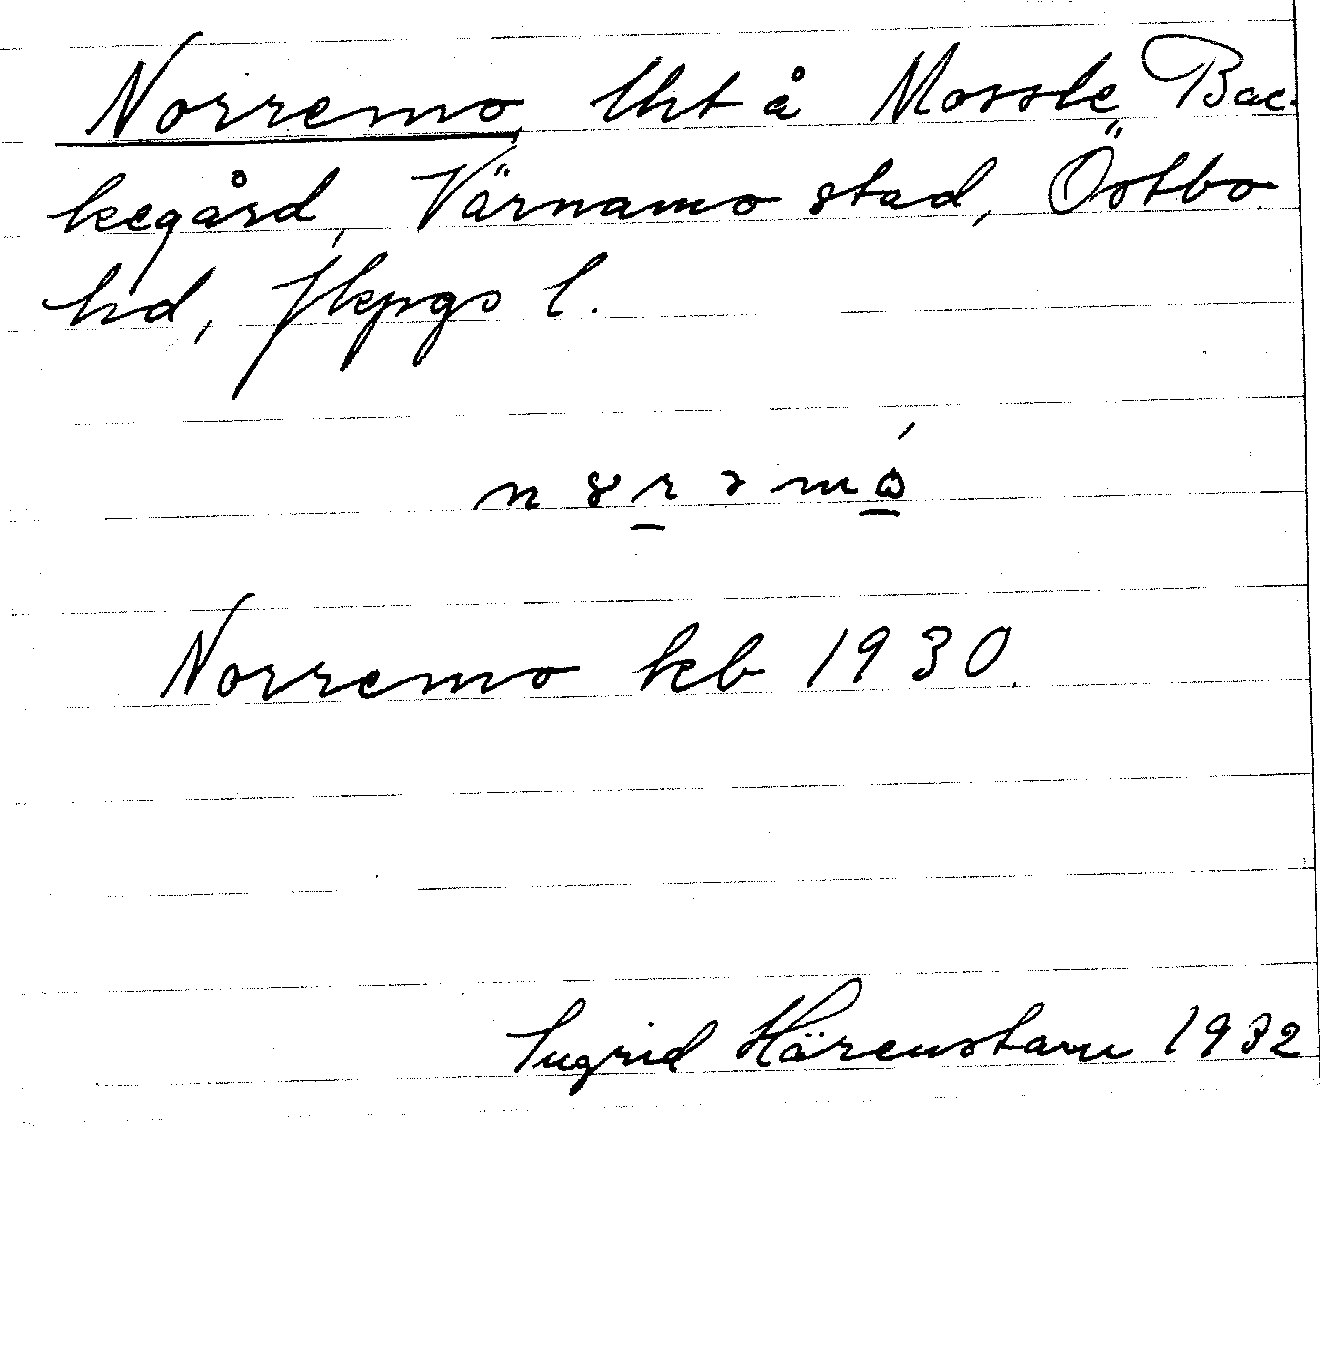 Norremo, lht å Mossle, Bac-
kegård, Värnamo stad, Östbo
hd, Jkpgs l.
Norremo kb 1930.
Ingrid Härenstam 1932